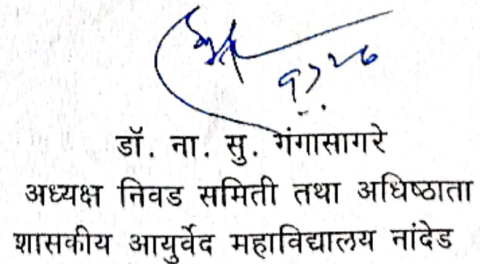 डॉ. ना. सु. गंगासागरे
अध्यक्ष निवड समिती तथा अधिष्ठाता
शासकीय आयुर्वेद महाविद्यालय नांदेड